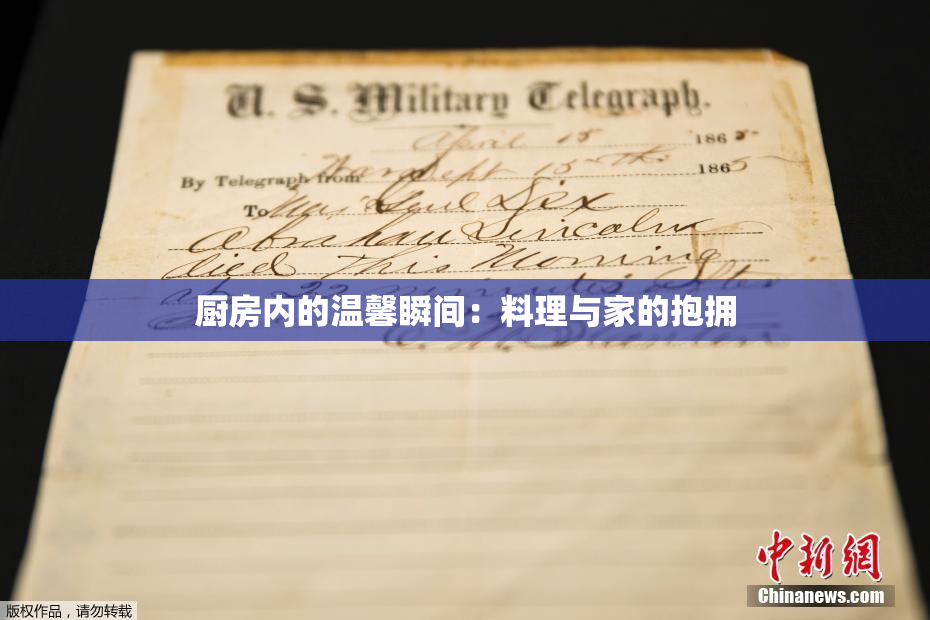 U. S. Military Telegraph.
April 15 1865
By Telegraph from War Dept 15th 1865
To Maj Genl Dix
Abraham Lincoln
died This Morning
at 22 minutes after
厨房内的温馨瞬间：料理与家的抱拥
E. M. Stanton
中新网
Chinanews.com
版权作品，请勿转载